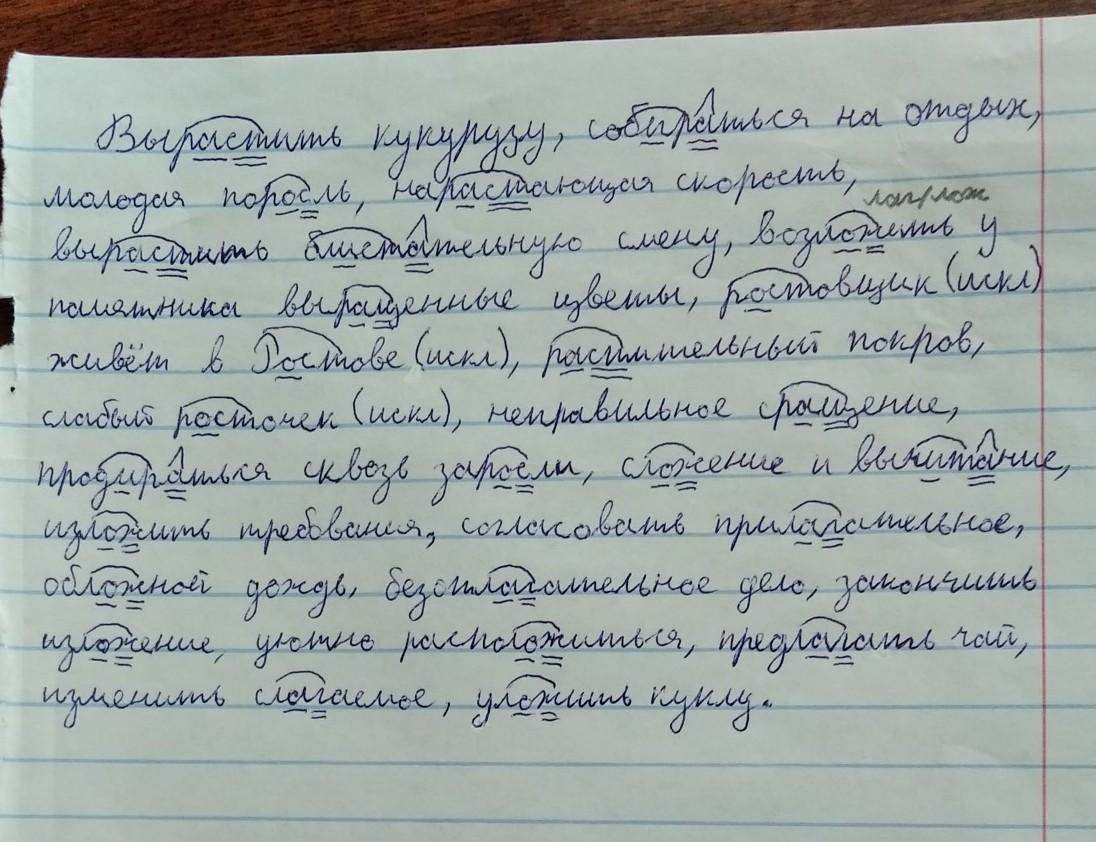 Вырастить кукурузу, собираться на отдых,
молодая поросль, нарастающая скорость,
лаг/лож
вырастить блистательную смену, возложить у
памятника выращенные цветы, ростовщик (искл)
живёт в Ростове (искл), растительный покров,
слабый росточек (искл), неправильное сращение,
продираться сквозь заросли, сложение и вычитание,
изложить требования, согласовать прилагательное,
обложной дождь, безотлагательное дело, закончить
изложение, уютно расположиться, предлагать чай,
изменить слагаемое, уложить куклу.